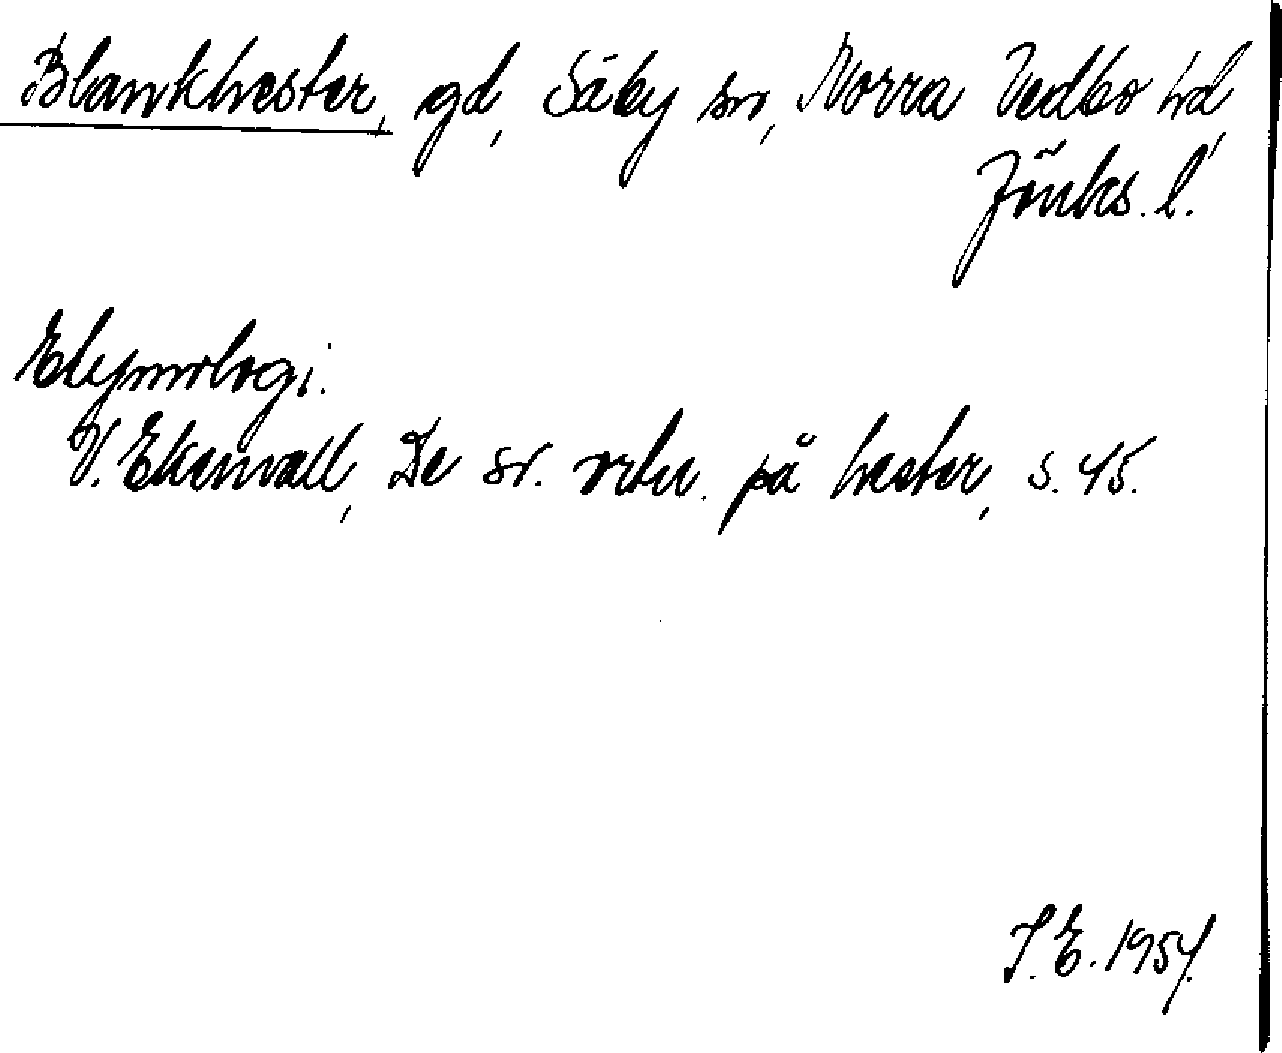 Blankhester, gd, Säby sn, Norra Vedbo hd,
Jönks. l.
Etymologi.
V. Ekenvall, De sv. ortn. på hester, s. 45.
I. E. 1954.